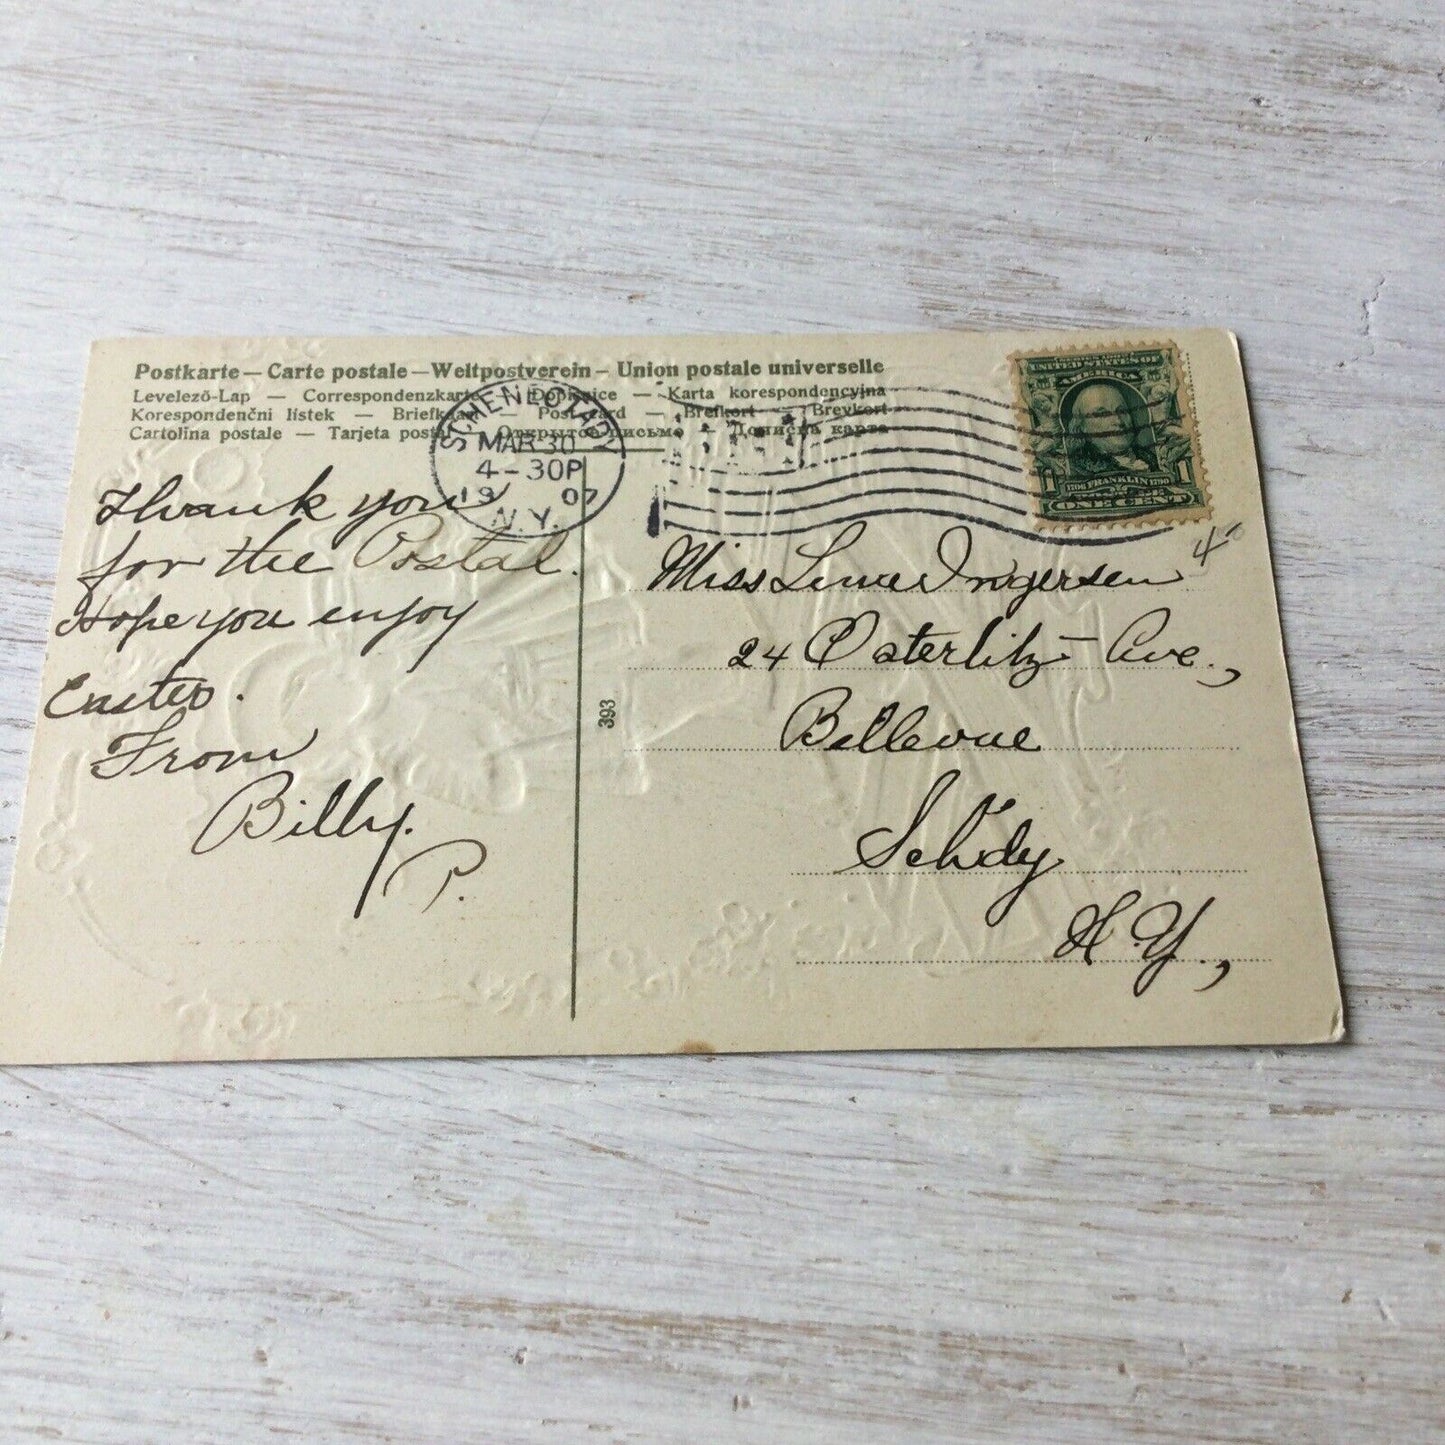 Postkarte — Carte postale — Weltpostverein — Union postale universelle
Levelező-Lap — Correspondenzkarte — Dopisnice — Karta korespondencyjna
Korespondenční lístek — Briefkaart — Post card — Brefkort — Brevkort
Cartolina postale — Tarjeta postal — Открытое письмо — Дописна карта
SCHENECTADY
MAR 30
4-30P
19 07
N.Y.
UNITED STATES OF
AMERICA
1 1
1706 FRANKLIN 1790
ONE CENT
Thank you
for the Postal.
Hope you enjoy
Easter.
From
Billy.
P.
393
4
Miss Ingersen
24 Ave.,
Bellevue
Sch'dy
N.Y.,